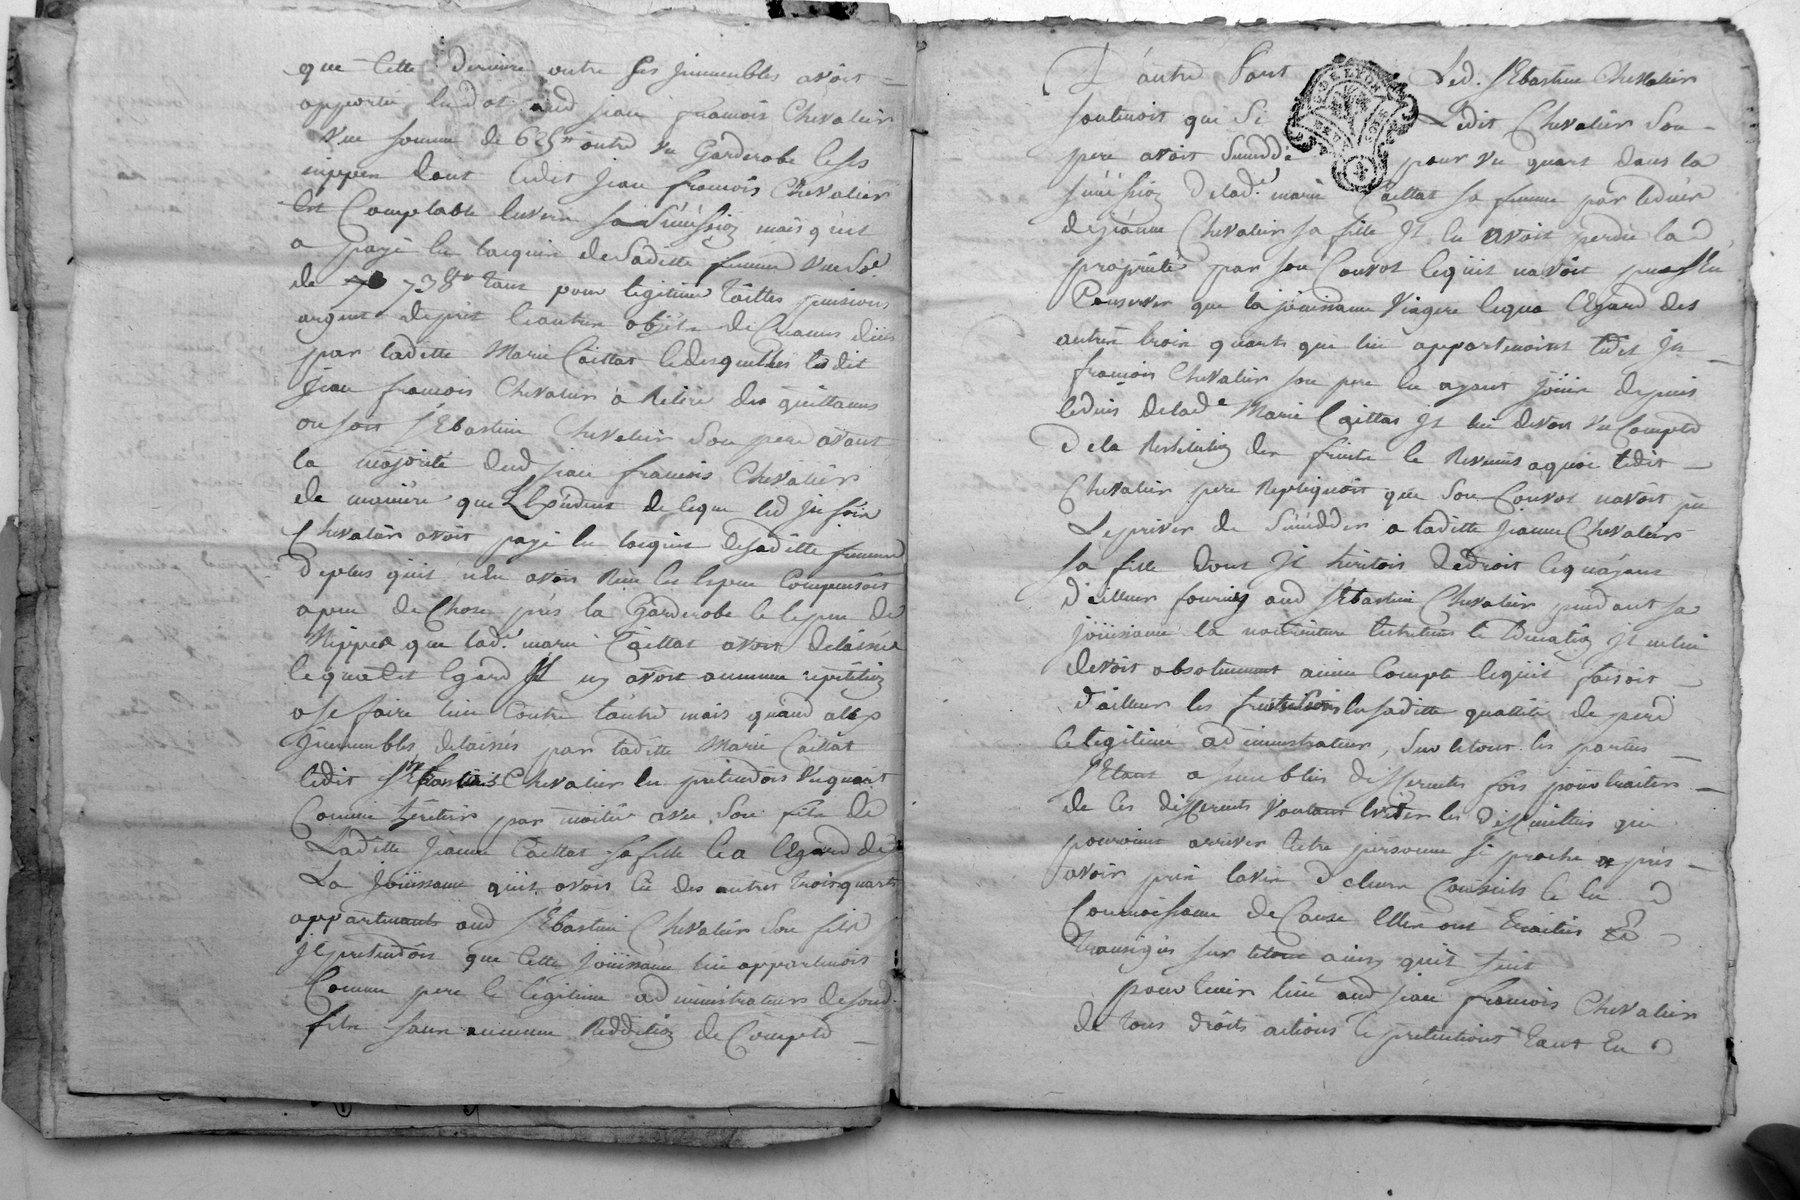 que cette derniere outre ses jmmeubles avoit
apporté en dot aud jean francois Chevalier
une somme de 625ᵗᵗ outre un Garderobe et ses
nippes dont ledit jean francois Chevalier
est Comptable envers sa Sucession mais qu'il
a payé en lacquit de Saditte femme une Soe
de 738ᵗᵗ tant pour legitime tailles pensions
argent depris et autres objets de Creances dües
par laditte Marie Caillat desquelles ledit
jean francois Chevalier a Retiré des quittances
ou soit sEbastien Chevalier Son pere avant
la majorité dud jean francois Chevalier
de maniere que Lexcedent de ce que led jn fois
Chevalier avoit payé en lacquit de saditte femme
de plus qu'il n'en avoit Reçu en espece Compensoit
a peu de Chose près la Garderobe et le peu de
Nippes que lade marie Caillat avoit delaissée
et qu'a cet Egard Jls ny avoit aucune répétition
a se faire l'un Contre l'autre mais quand aux
Jmmeubles delaissés par laditte Marie Caillat
ledit sEbastien Chevalier en pretendoit un quart
Comme heritier par moitié avec Son fils de
Laditte jeanne Caillat sa fille et a lEgard de
La joüissance qu'il avoit eu des autres trois quarts
appartenants aud sEbastien Chevalier Son fils
Jl pretendoit que cette joüissance lui appartenoit
Comme pere et legitime administrateur de sond
fils sans aucune Reddition de Compte
D'autre Part Led. sEbastien Chevalier
soutenoit que Si Ledit Chevalier Son
pere avoit Succeddé pour un quart dans la
sucession de lade marie Caillat sa femme par le decès
de jeanne Chevalier sa fille Jl en avoit perdu la
proprieté par son Convol et qu'il n'avoit pu s'en
Conserver que la joüissance Viagere et qua lEgard des
autres trois quarts que lui appartenoient ledit jn
francois Chevalier son pere en ayant joüi depuis
le deces de lade Marie Caillat Jl lui devoit un Compte
De la Restitution des fruits et Revenus a quoi ledit
Chevalier pere Repliquoit que Son Convol n'avoit pu
Le priver de Succedder a laditte jeanne Chevalier
sa fille dont Jl heritoit de droit et qu'ayant
d'ailleurs fourny aud sEbastien Chevalier pendant sa
joüissance la nourriture Entretien et Education Jl ne lui
devoit absolument aucun Compte et qu'il faisoit
d'ailleurs les fruits siens en saditte qualitté de pere
et legitime administrateur, Sur letout les parties
s'Etant assemblées differentes fois pour traiter
de ces differents Voulant Eviter les difficultés qui
pouroient arriver Entre personne si proche apres
avoir pris lavis de leurs Conseils et en
Connoissance de Cause Elles ont traitté Et
transigés sur letout ainsy quil suit
pour tenir lieu aud jean francois Chevalier
de tous droits actions et pretentions tant En